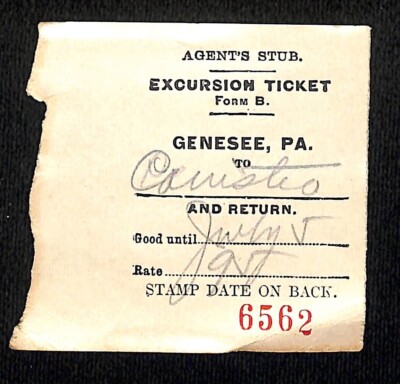 AGENT'S STUB.
EXCURSION TICKET
FORM B.
GENESEE, PA.
TO
Canisteo
AND RETURN.
Good until July 5
Rate 95
STAMP DATE ON BACK.
6562